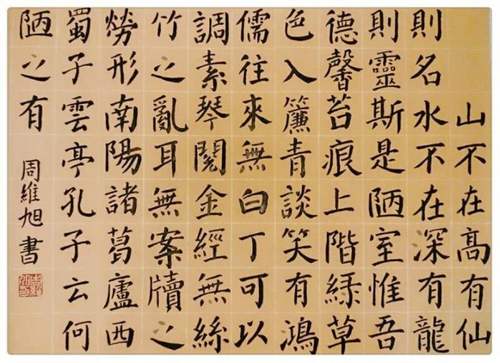 山不在高有仙
則名水不在深有龍
則靈斯是陋室惟吾
德馨苔痕上階緑草
色入簾青談笑有鴻
儒往來無白丁可以
調素琴閱金經無絲
竹之亂耳無案牘之
勞形南陽諸葛廬西
蜀子雲亭孔子云何
陋之有
周維旭書